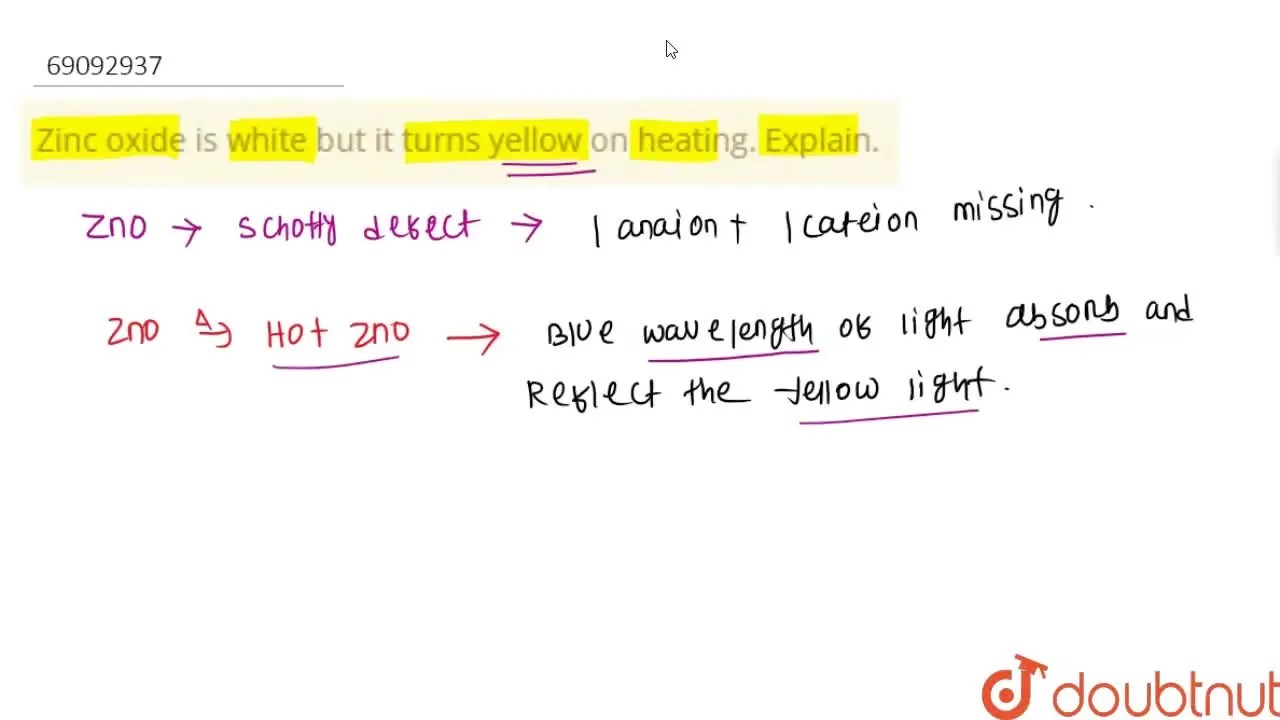 69092937
Zinc oxide is white but it turns yellow on heating. Explain.
ZnO → schotty defect → 1 anaion + 1 cateion missing.
ZnO Δ→ Hot ZnO → Blue wavelength of light absorb and
Reflect the yellow light.
doubtnut